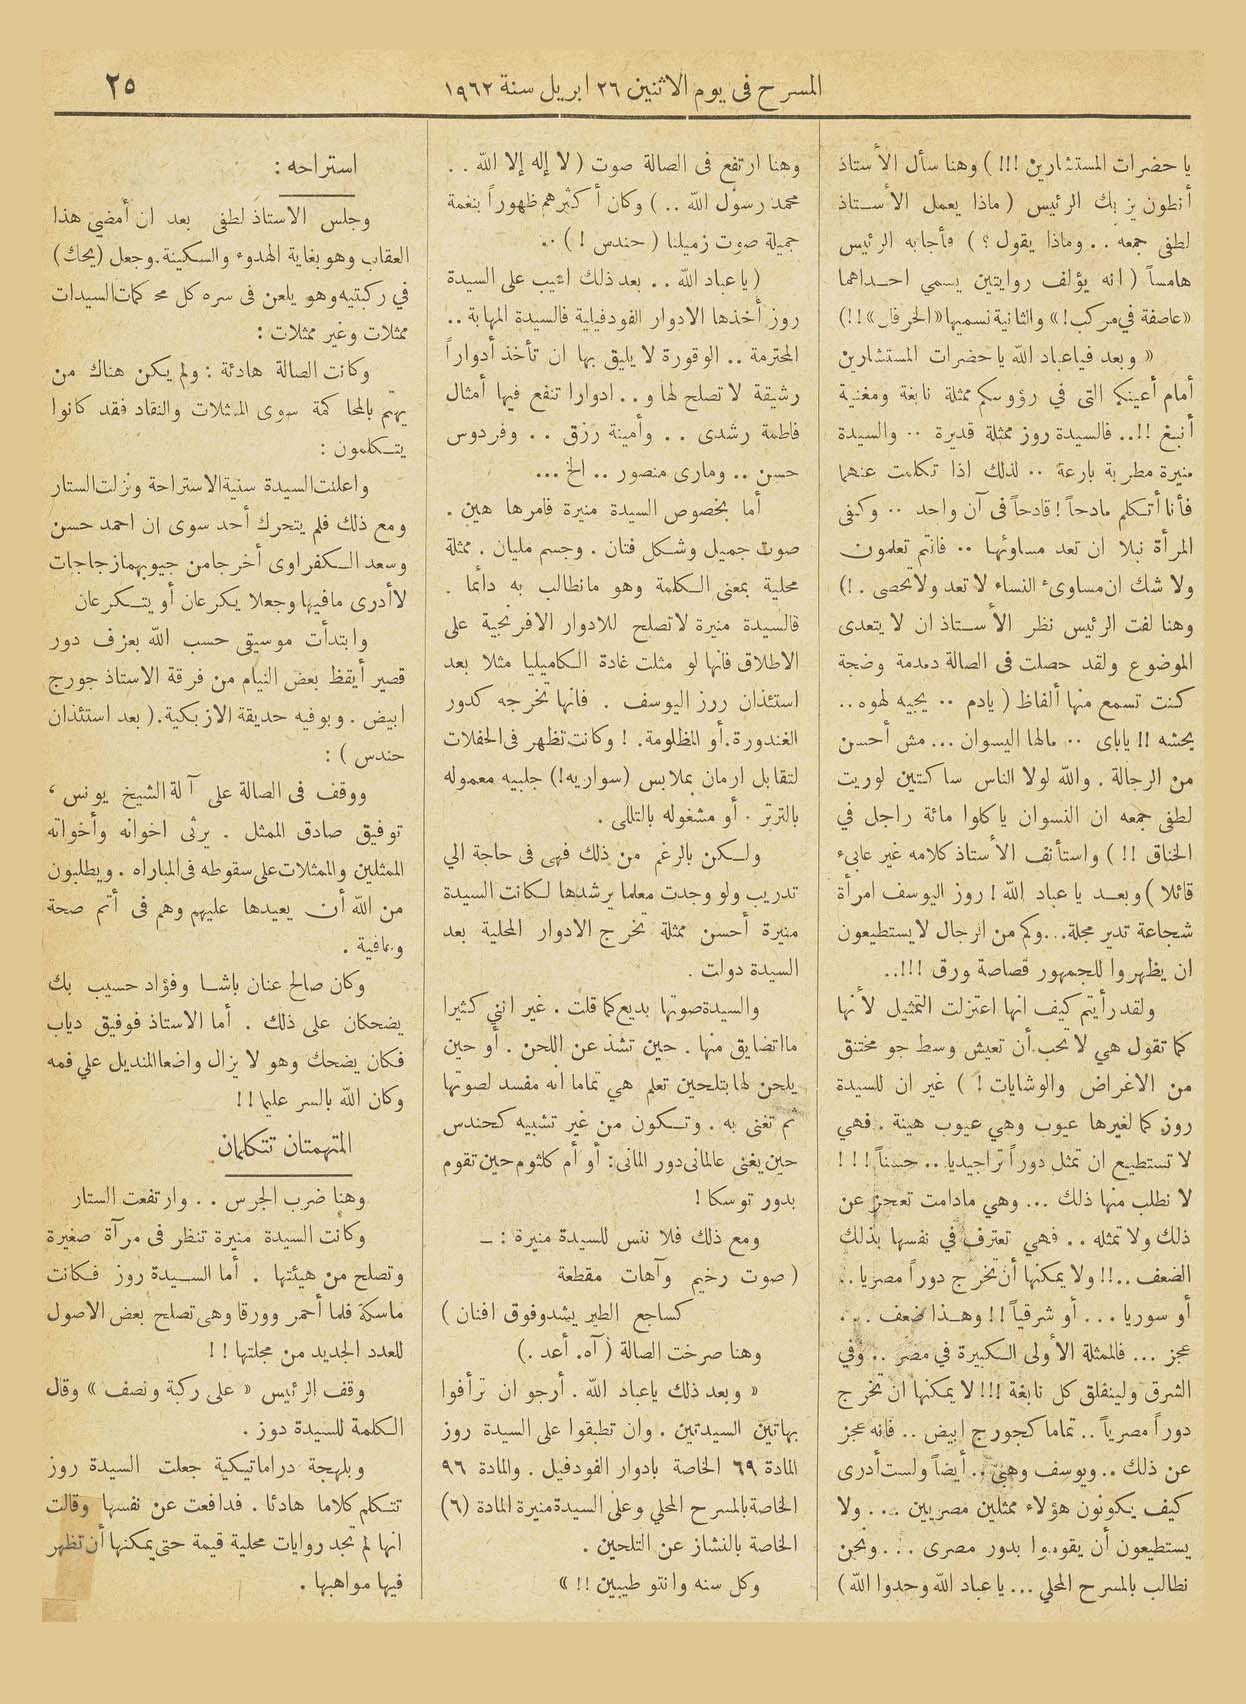 المسرح فى يوم الاثنين ٢٦ ابريل سنة ١٩٦٢
٢٥
يا حضرات المستشارين !!! ) وهنا سأل الأستاذ
أنطون يزبك الرئيس ( ماذا يعمل الأستاذ
لطفى جمعه .. وماذا يقول ؟ ) فأجابه الرئيس
هامساً ( انه يؤلف روايتين يسمي احداهما
«عاصفة في مركب !» والثانية نسميها «الخرفان» !!)
« وبعد فياعباد الله يا حضرات المستشارين
أمام أعينكم التى في رؤوسكم ممثلة نابغة ومغنية
أنبغ !!.. فالسيدة روز ممثلة قديرة .. والسيدة
منيرة مطربة بارعة .. لذلك اذا تكلمت عنهما
فأنا أتكلم مادحاً ! قادحاً فى آن واحد .. وكفى
المرأة نبلا ان تعد مساوئها .. فانتم تعلمون
ولا شك ان مساوىء النساء لا تعد ولا تحصى . !)
وهنا لفت الرئيس نظر الأستاذ ان لا يتعدى
الموضوع ولقد حصلت فى الصالة دمدمة وضجة
كنت تسمع منها ألفاظ ( يادم .. يجيه لهوه ..
يحشه !! ياباى .. مالها اليسوان ... مش أحسن
من الرجالة . والله لولا الناس ساكتين لوريت
لطفى جمعه ان النسوان ياكلوا مائة راجل في
الخناق !! ) واستأنف الأستاذ كلامه غير عابىء
قائلا ) وبعد ياعباد الله ! روز اليوسف امرأة
شجاعة تدير مجلة... وكم من الرجال لا يستطيعون
ان يظهروا للجمهور قصاصة ورق !!!..
ولقد رأيتم كيف انها اعتزلت التمثيل لأنها
كما تقول هي لا تحب أن تعيش وسط جو مختنق
من الاغراض والوشايات ! ) غير ان للسيدة
روز كما لغيرها عيوب وهي عيوب هينة . فهي
لا تستطيع ان تمثل دوراً تراجيديا .. حسناً ! ! !
لا نطلب منها ذلك ... وهي مادامت تعجز عن
ذلك ولا تمثله .. فهي تعترف في نفسها بذلك
الضعف ..!! ولا يمكنها أن تخرج دوراً مصريا ..
أو سوريا ... أو شرقياً !! وهذا ضعف ...
عجز ... فالممثلة الأولى الكبيرة في مصر .. وفي
الشرق ولينفلق كل نابغة !!! لا يمكنها ان تخرج
دوراً مصرياً .. تماما كجورج ابيض .. فانه عجز
عن ذلك .. ويوسف وهبي .. أيضاً ولست أدرى
كيف يكونون هؤلاء ممثلين مصريين ... ولا
يستطيعون أن يقوموا بدور مصرى ... ونحن
نطالب بالمسرح المحلي ... ياعباد الله وحدوا الله )
وهنا ارتفع فى الصالة صوت ( لا إله إلا الله ..
محمد رسول الله .. ) وكان أكثرهم ظهوراً بنغمة
جميلة صوت زميلنا ( حندس ! ) ..
( يا عباد الله .. بعد ذلك اعيب على السيدة
روز أخذها الادوار الفودفيلية فالسيدة المهابة ..
المحترمة .. الوقورة لا يليق بها ان تأخذ أدواراً
رشيقة لا تصلح لها و .. ادوارا تنفع فيها أمثال
فاطمة رشدى .. وأمينة رزق .. وفردوس
حسن .. ومارى منصور .. الخ ...
أما بخصوص السيدة منيرة فامرها هين .
صوت جميل وشكل فتان . وجسم مليان . ممثلة
محلية بمعنى الكلمة وهو مانطالب به دائما .
فالسيدة منيرة لا تصلح للادوار الافرنجية على
الاطلاق فانها لو مثلت غادة الكاميليا مثلا بعد
استئذان روز اليوسف . فانها تخرجه كدور
الغندورة . أو المظلومة . ! وكانت تظهر فى الحفلات
لتقابل ارمان بملابس (سواريه !) جلبيه معموله
بالترتر . أو مشغوله بالتللى .
ولكن بالرغم من ذلك فهى فى حاجة الي
تدريب ولو وجدت معلما يرشدها لكانت السيدة
منيرة أحسن ممثلة تخرج الادوار المحلية بعد
السيدة دولت .
والسيدة صوتها بديع كما قلت . غير انني كثيرا
ما اتضايق منها . حين تشذ عن اللحن . أو حين
يلحن لها بتلحين تعلم هي تماما انه مفسد لصوتها
ثم تغنى به . وتكون من غير تشبيه كحندس
حين يغنى عالمانى دور المانى : أو أم كلثوم حين تقوم
بدور توسكا !
ومع ذلك فلا ننس للسيدة منيرة : –
( صوت رخيم وآهات مقطعة
كساجع الطير يشدو فوق افنان )
وهنا صرخت الصالة ( آه . أعد . )
« وبعد ذلك ياعباد الله . أرجو ان ترأفوا
بهاتين السيدتين . وان تطبقوا على السيدة روز
المادة ٦٩ الخاصة بادوار الفودفيل . والمادة ٩٦
الخاصة بالمسرح المحلي وعلى السيدة منيرة المادة (٦)
الخاصة بالنشاز عن التلحين .
وكل سنه وانتو طيبين !! »
استراحه :
وجلس الاستاذ لطفى بعد ان أمضي هذا
العقاب وهو بغاية الهدوء والسكينة . وجعل (يحك)
في ركبتيه وهو يلعن فى سره كل محكمات السيدات
ممثلات وغير ممثلات :
وكانت الصالة هادئة : ولم يكن هناك من
يهتم بالمحاكمة سوى الممثلات والنقاد فقد كانوا
يتكلمون :
واعلنت السيدة سنية الاستراحة ونزلت الستار
ومع ذلك فلم يتحرك أحد سوى ان احمد حسن
وسعد الكفراوى أخرجا من جيوبهما زجاجات
لا أدرى مافيها وجعلا يكرعان أو يتكرعان
وابتدأت موسيقى حسب الله بعزف دور
قصير أيقظ بعض النيام من فرقة الاستاذ جورج
ابيض . وبوفيه حديقة الازبكية . ( بعد استئذان
حندس ) :
ووقف فى الصالة على آلة الشيخ يونس ،
توفيق صادق الممثل . يرثى اخوانه وأخواته
الممثلين والممثلات على سقوطه فى المباراه . ويطلبون
من الله أن يعيدها عليهم وهم فى أتم صحة
وعافية .
وكان صالح عنان باشا وفؤاد حسيب بك
يضحكان على ذلك . أما الاستاذ فوفيق دياب
فكان يضحك وهو لا يزال واضعا المنديل علي فمه
وكان الله بالسر عليما !!
المتهمتان تتكلمان
وهنا ضرب الجرس .. وارتفعت الستار
وكانت السيدة منيرة تنظر فى مرآة صغيرة
وتصلح من هيئتها . أما السيدة روز فكانت
ماسكة قلما أحمر وورقا وهى تصلح بعض الاصول
للعدد الجديد من مجلتها !!
وقف الرئيس « على ركبة ونصف » وقال
الكلمة للسيدة دوز .
وبلهجة دراماتيكية جعلت السيدة روز
تتكلم كلاما هادئا . فدافعت عن نفسها وقالت
انها لم تجد روايات محلية قيمة حتى يمكنها أن تظهر
فيها مواهبها .